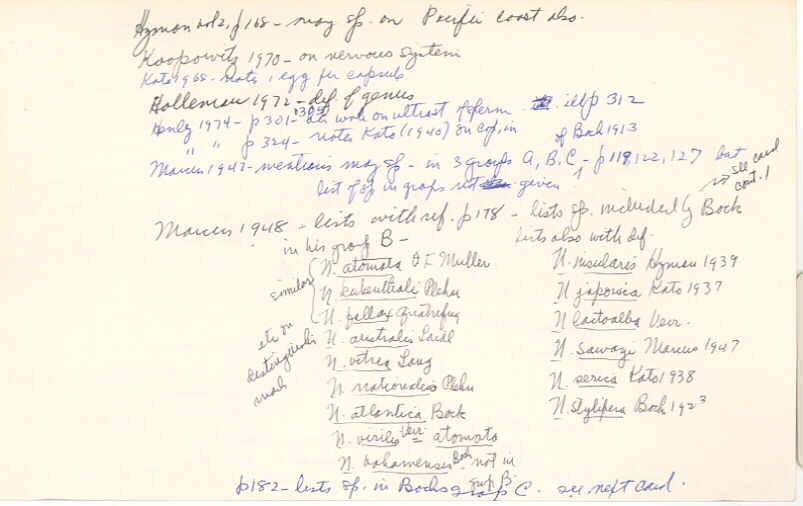 Hyman vol 2, p 168 - may sp. on Pacific coast also.
Koopowitz 1970 - on nervous system
Kato 1968 - notes 1 egg per capsule
Holleman 1972 - def. of genus
Henly 1974 - p 301-309 - work on ultrast of sperm ill p 312
" " p 324 - notes Kato (1940) on cop. in of Bock 1913
Marcus 1947 - mentions may sp - in 3 groups A, B, C - p 119, 122, 127 but
list of sp in groups not given
see card cont. 1
Marcus 1948 - lists with ref. p 178 - lists sp. included by Bock
in his group B -
lists also with def.
similar
N. atomata O F Muller
N. kukenthali Plehn
N. fallax Quatrefag
N. australis Laidl
N. vitrea Lang
N. nationalis Plehn
N. atlantica Bock
N. virilis Verr = atomata
N. bahamensis Bock not in grp. B.
etc on distinguishing marks
N. insularis Hyman 1939
N japonica Kato 1937
N lactoalba Verr.
N. sawayai Marcus 1947
N. serica Kato 1938
N. stylifera Bock 1923
p 182 - lists sp. in Bocks group C. see next card.